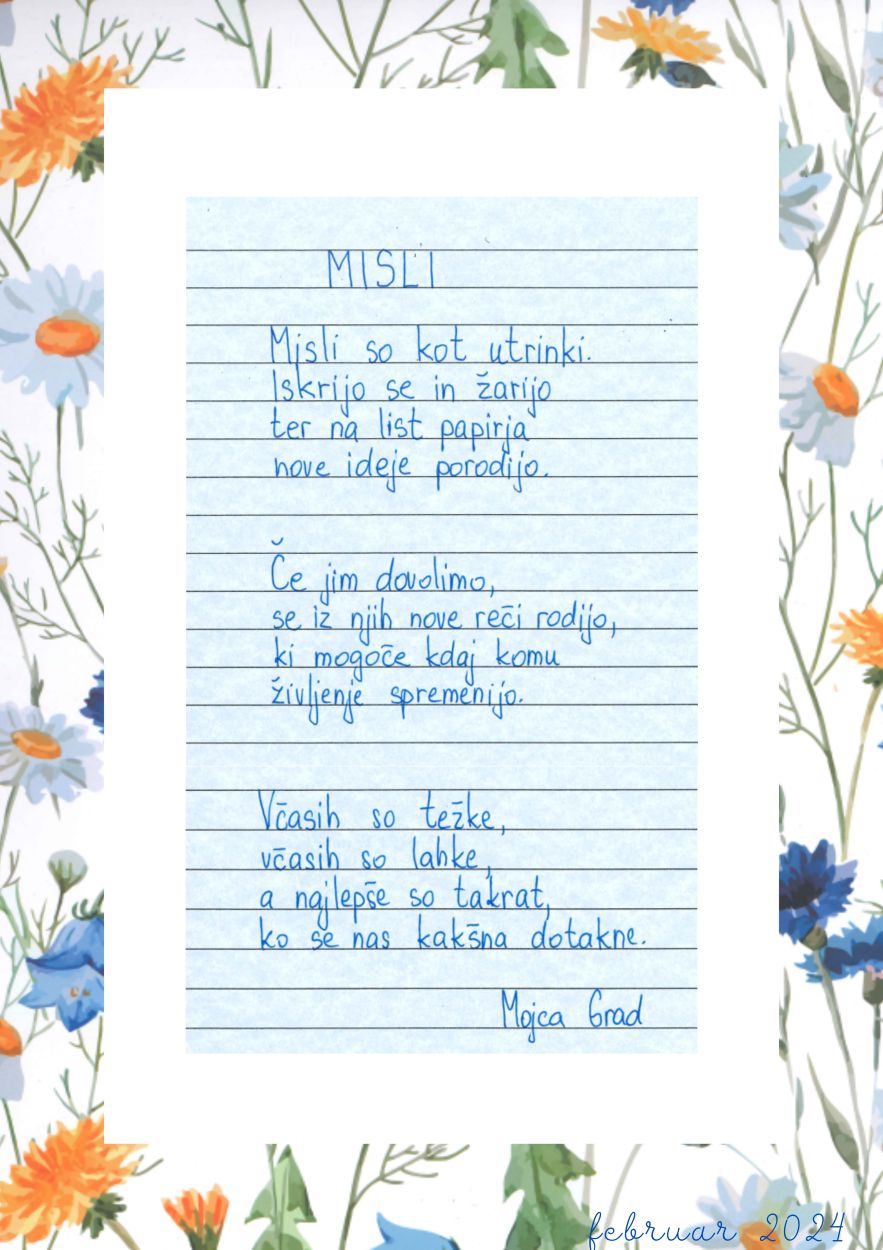 MISLI
Misli so kot utrinki.
Iskrijo se in žarijo
ter na list papirja
nove ideje porodijo.
Če jim dovolimo,
se iz njih nove reči rodijo,
ki mogoče kdaj komu
življenje spremenijo.
Včasih so težke,
včasih so lahke,
a najlepše so takrat,
ko se nas kakšna dotakne.
Mojca Grad
februar 2024